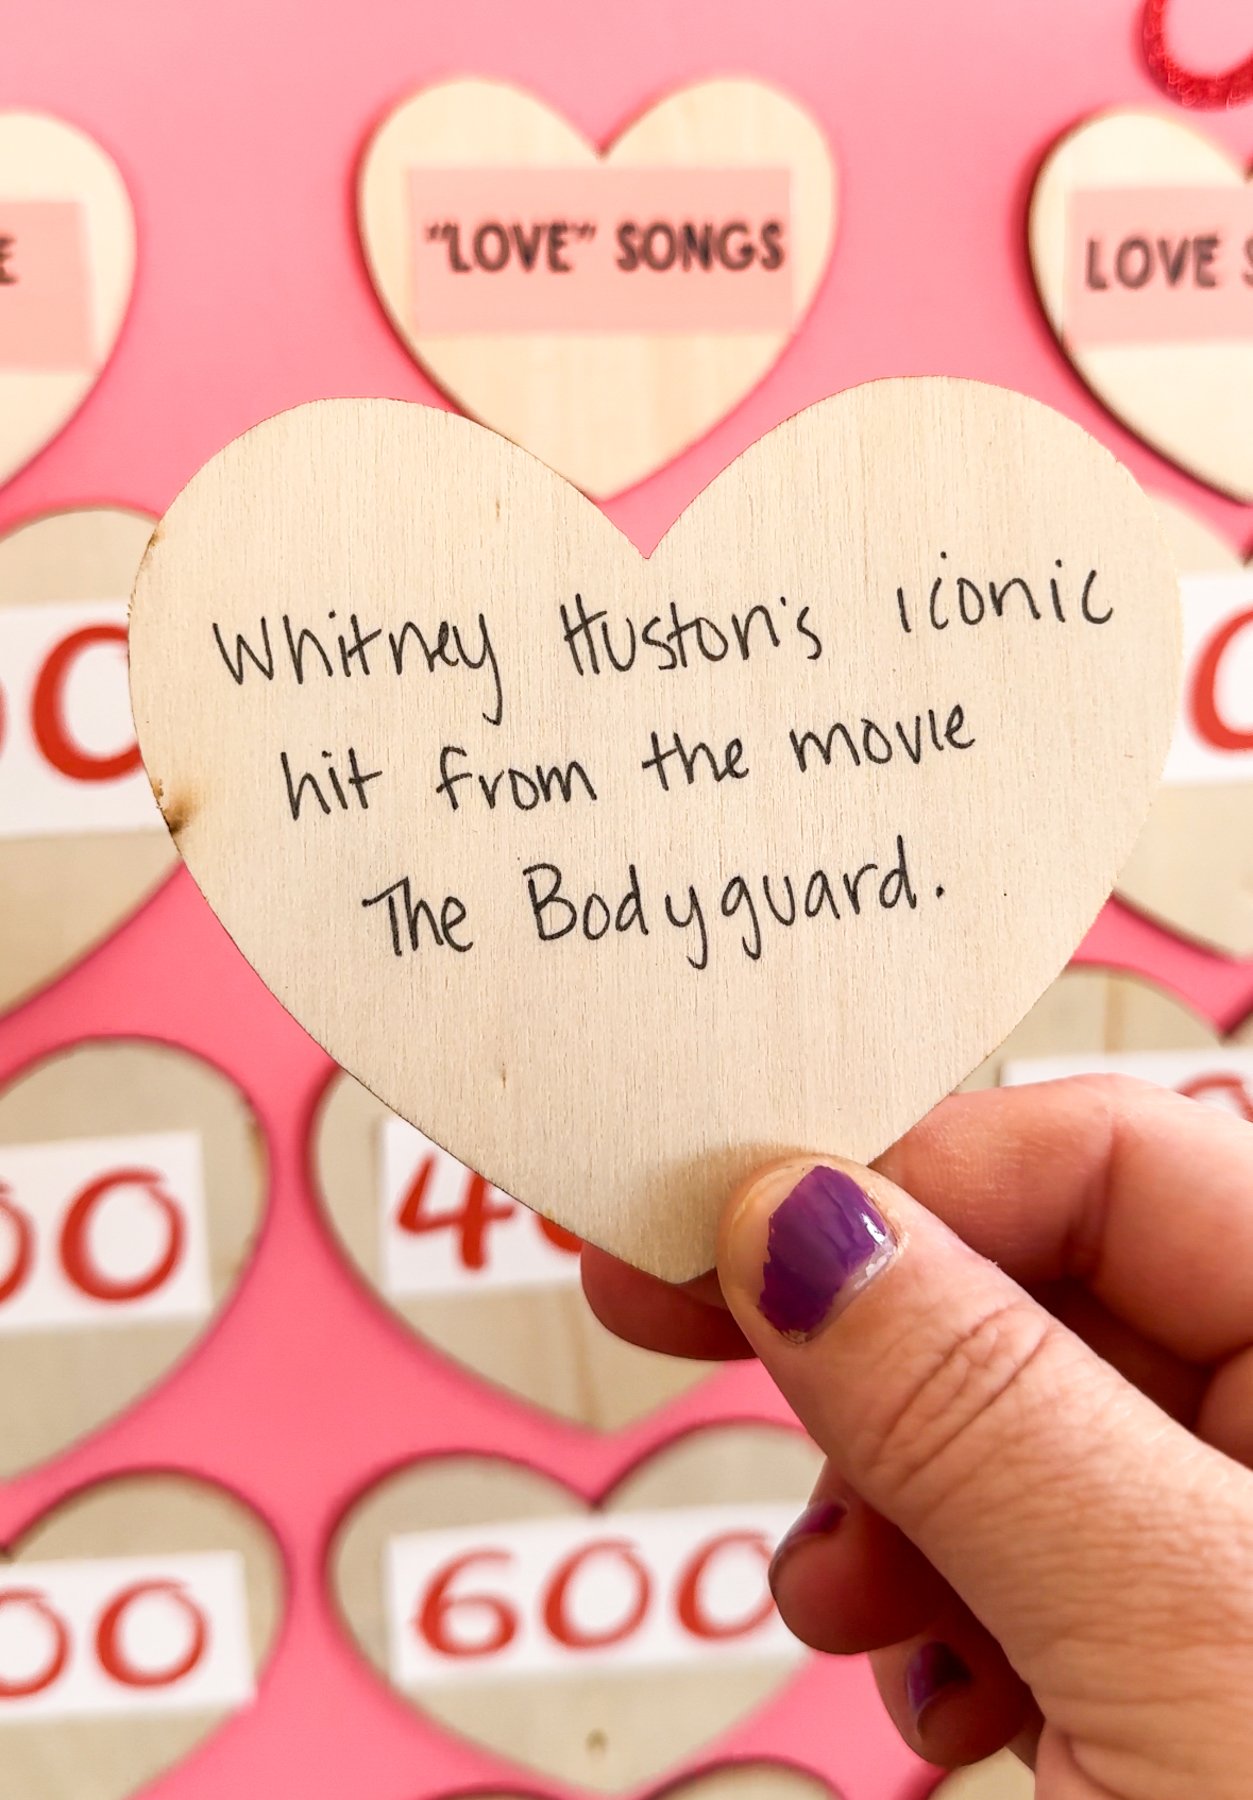 "LOVE" SONGS
LOVE
Whitney Huston's iconic
hit from the movie
The Bodyguard.
600